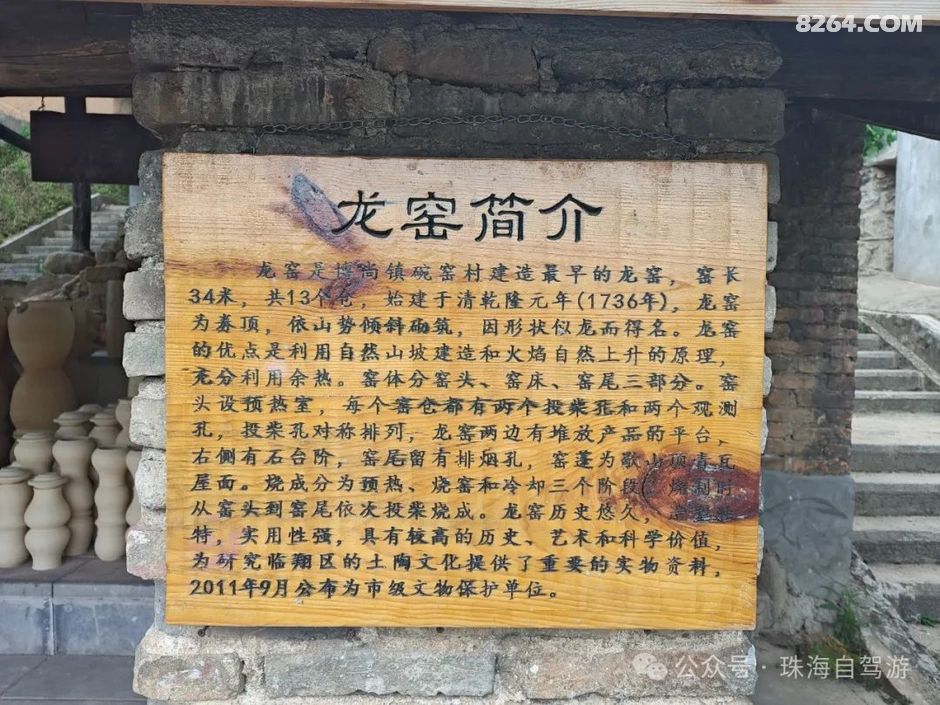 8264.COM
龙窑简介
龙窑是博尚镇碗窑村建造最早的龙窑，窑长
34米，共13个仓，始建于清乾隆元年(1736年)，龙窑
为券顶，依山势倾斜砌筑，因形状似龙而得名。龙窑
的优点是利用自然山坡建造和火焰自然上升的原理，
充分利用余热。窑体分窑头、窑床、窑尾三部分。窑
头设预热室，每个窑仓都有两个投柴孔和两个观测
孔，投柴孔对称排列，龙窑两边有堆放产品的平台，
右侧有石台阶，窑尾留有排烟孔，窑蓬为歇山顶青瓦
屋面。烧成分为预热、烧窑和冷却三个阶段，烧制时
从窑头到窑尾依次投柴烧成。龙窑历史悠久，
特，实用性强，具有较高的历史、艺术和科学价值，
为研究临翔区的土陶文化提供了重要的实物资料，
2011年9月公布为市级文物保护单位。
公众号·珠海自驾游